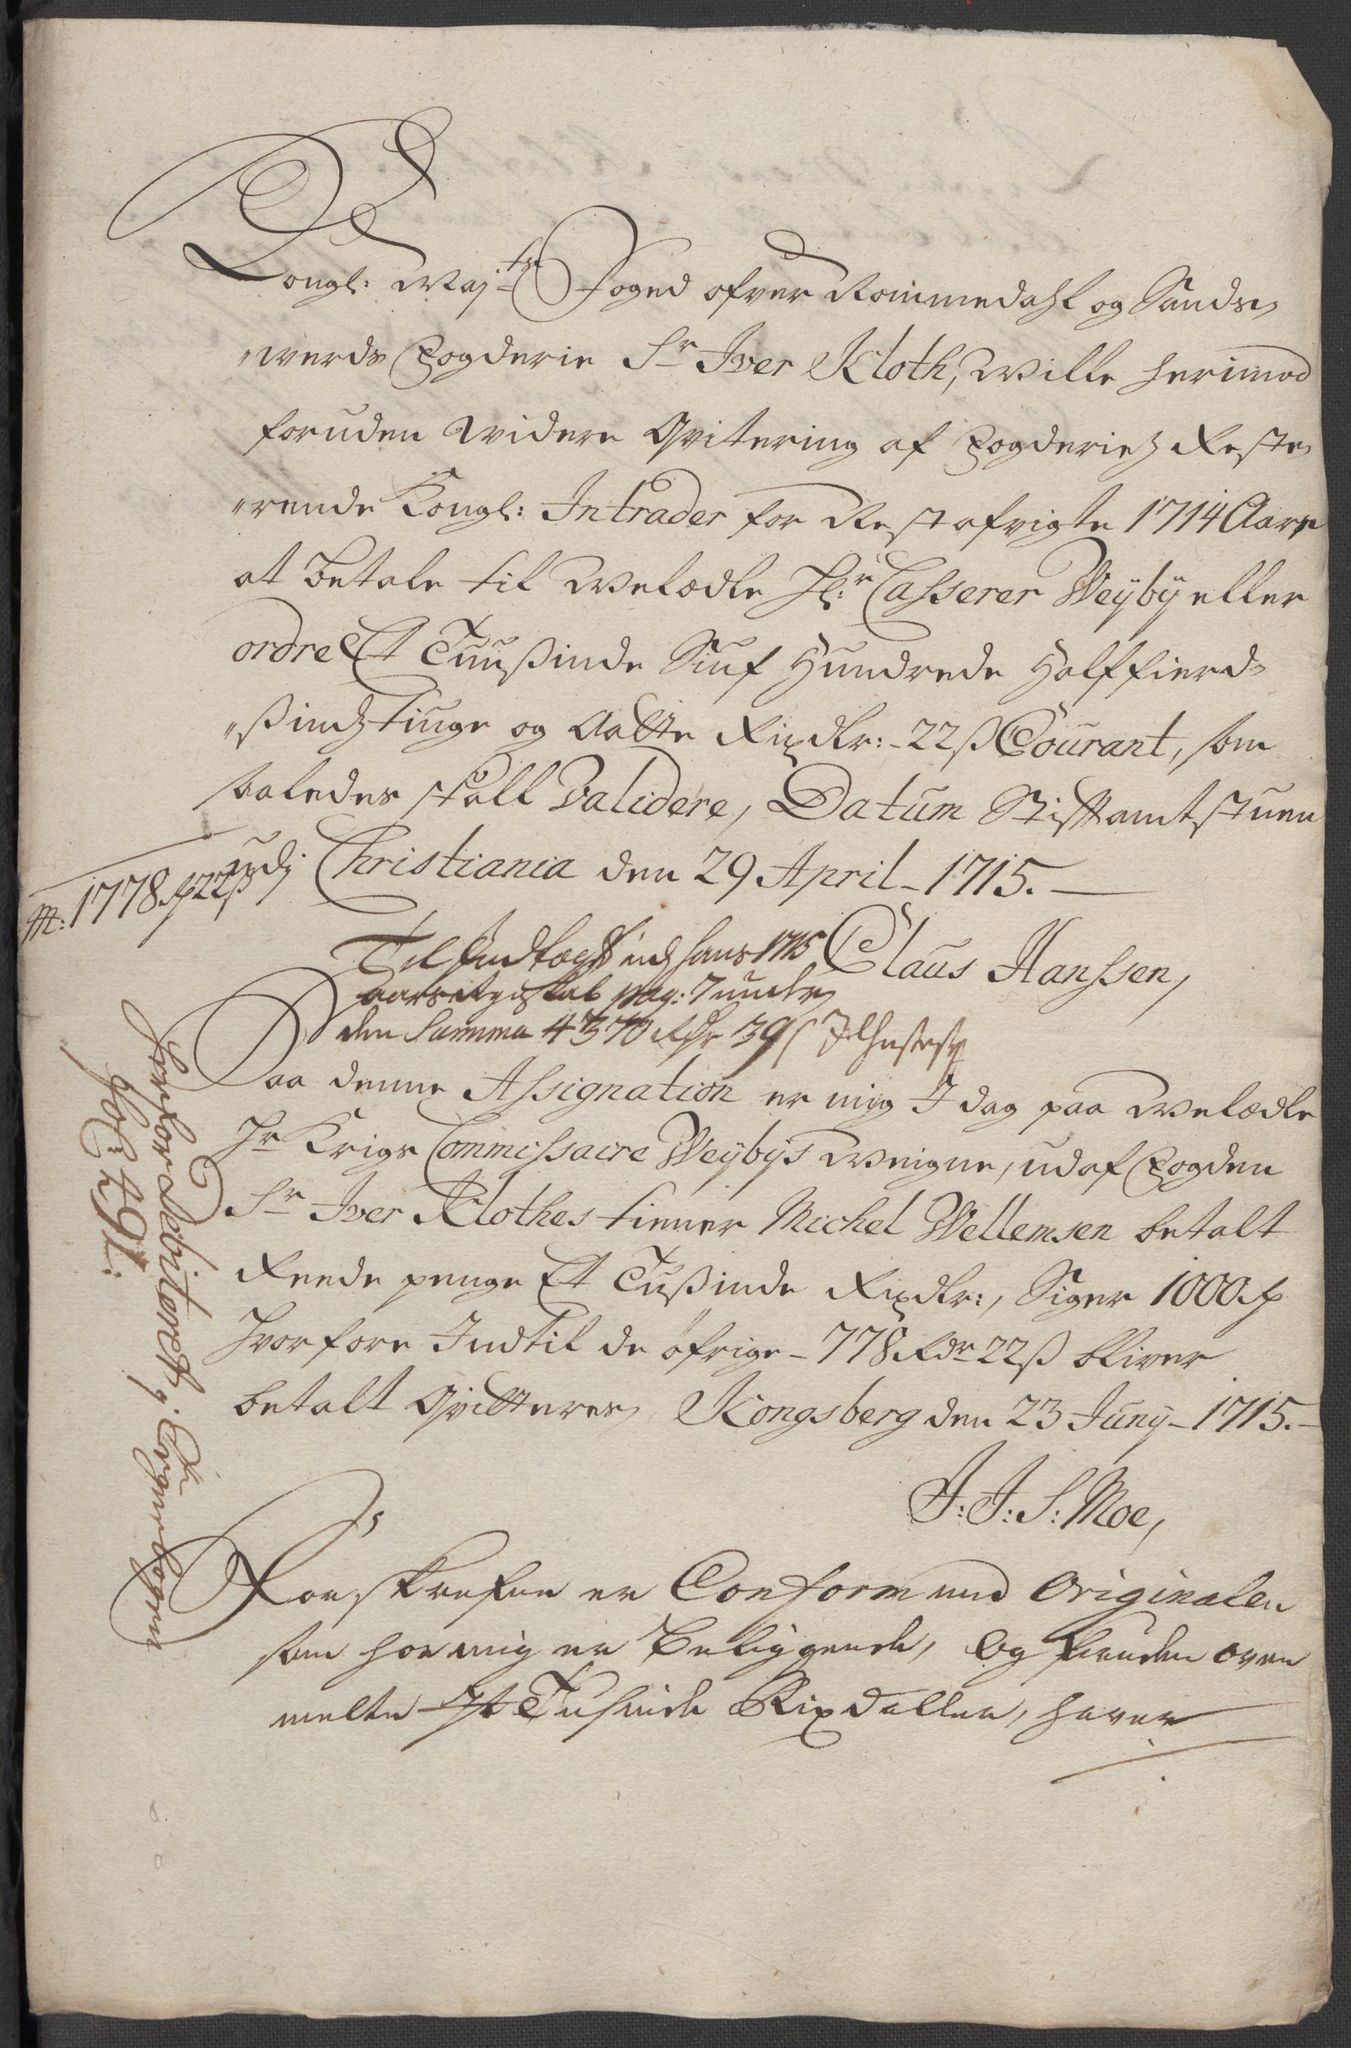 Kongl: Maj:ts Foged ofver Nommedahl og Sands-
-verds Fogderie Sr Iver Kloth, wille herimod
foruden widere Qvitering af Fogderietz Reste-
-rende Kongl: Intrader for Rest afvigte 1714 Aars
at betale til Welædle Hr: Casserer Weyby eller
ordre Et Tuusinde Siuf Hundrede Halffierd-
-sindztiuge og Aatte Rixdlr: - 22ß Courant, som
saaledes skall Validere, Datum Stiftamtstuen
udj Christiania den 29 April - 1715. -
1778 22ß
Claus Hanssen,
Til Indtægt udj hans 1715
aars Regnskab pag: 7 under
den Summa 4370 Rdr 39ß
Paa denne Assignation er mig I dag paa Welædle
Hr Krigs Commissaire Weybys Weigne, udaf Fogden
Sr Iver Klothes tiener Michel Wellemsen betalt
Reede penge Et Tusinde Rixdlr:, Siger 1000
Hvorfore Indtil de øfrige - 778 Rdr 22ß bliver
betalt Qvitteres, Kongsberg den 23 Juny - 1715. -
J: J: S: Moe,
Forskrefne er Conform med Originalen
som hos mig er beliggende, Og foruden oven
melte Et Tusinde Rixdaller, haver
Herfor Debiteret j Cassebogen
fol: 491: